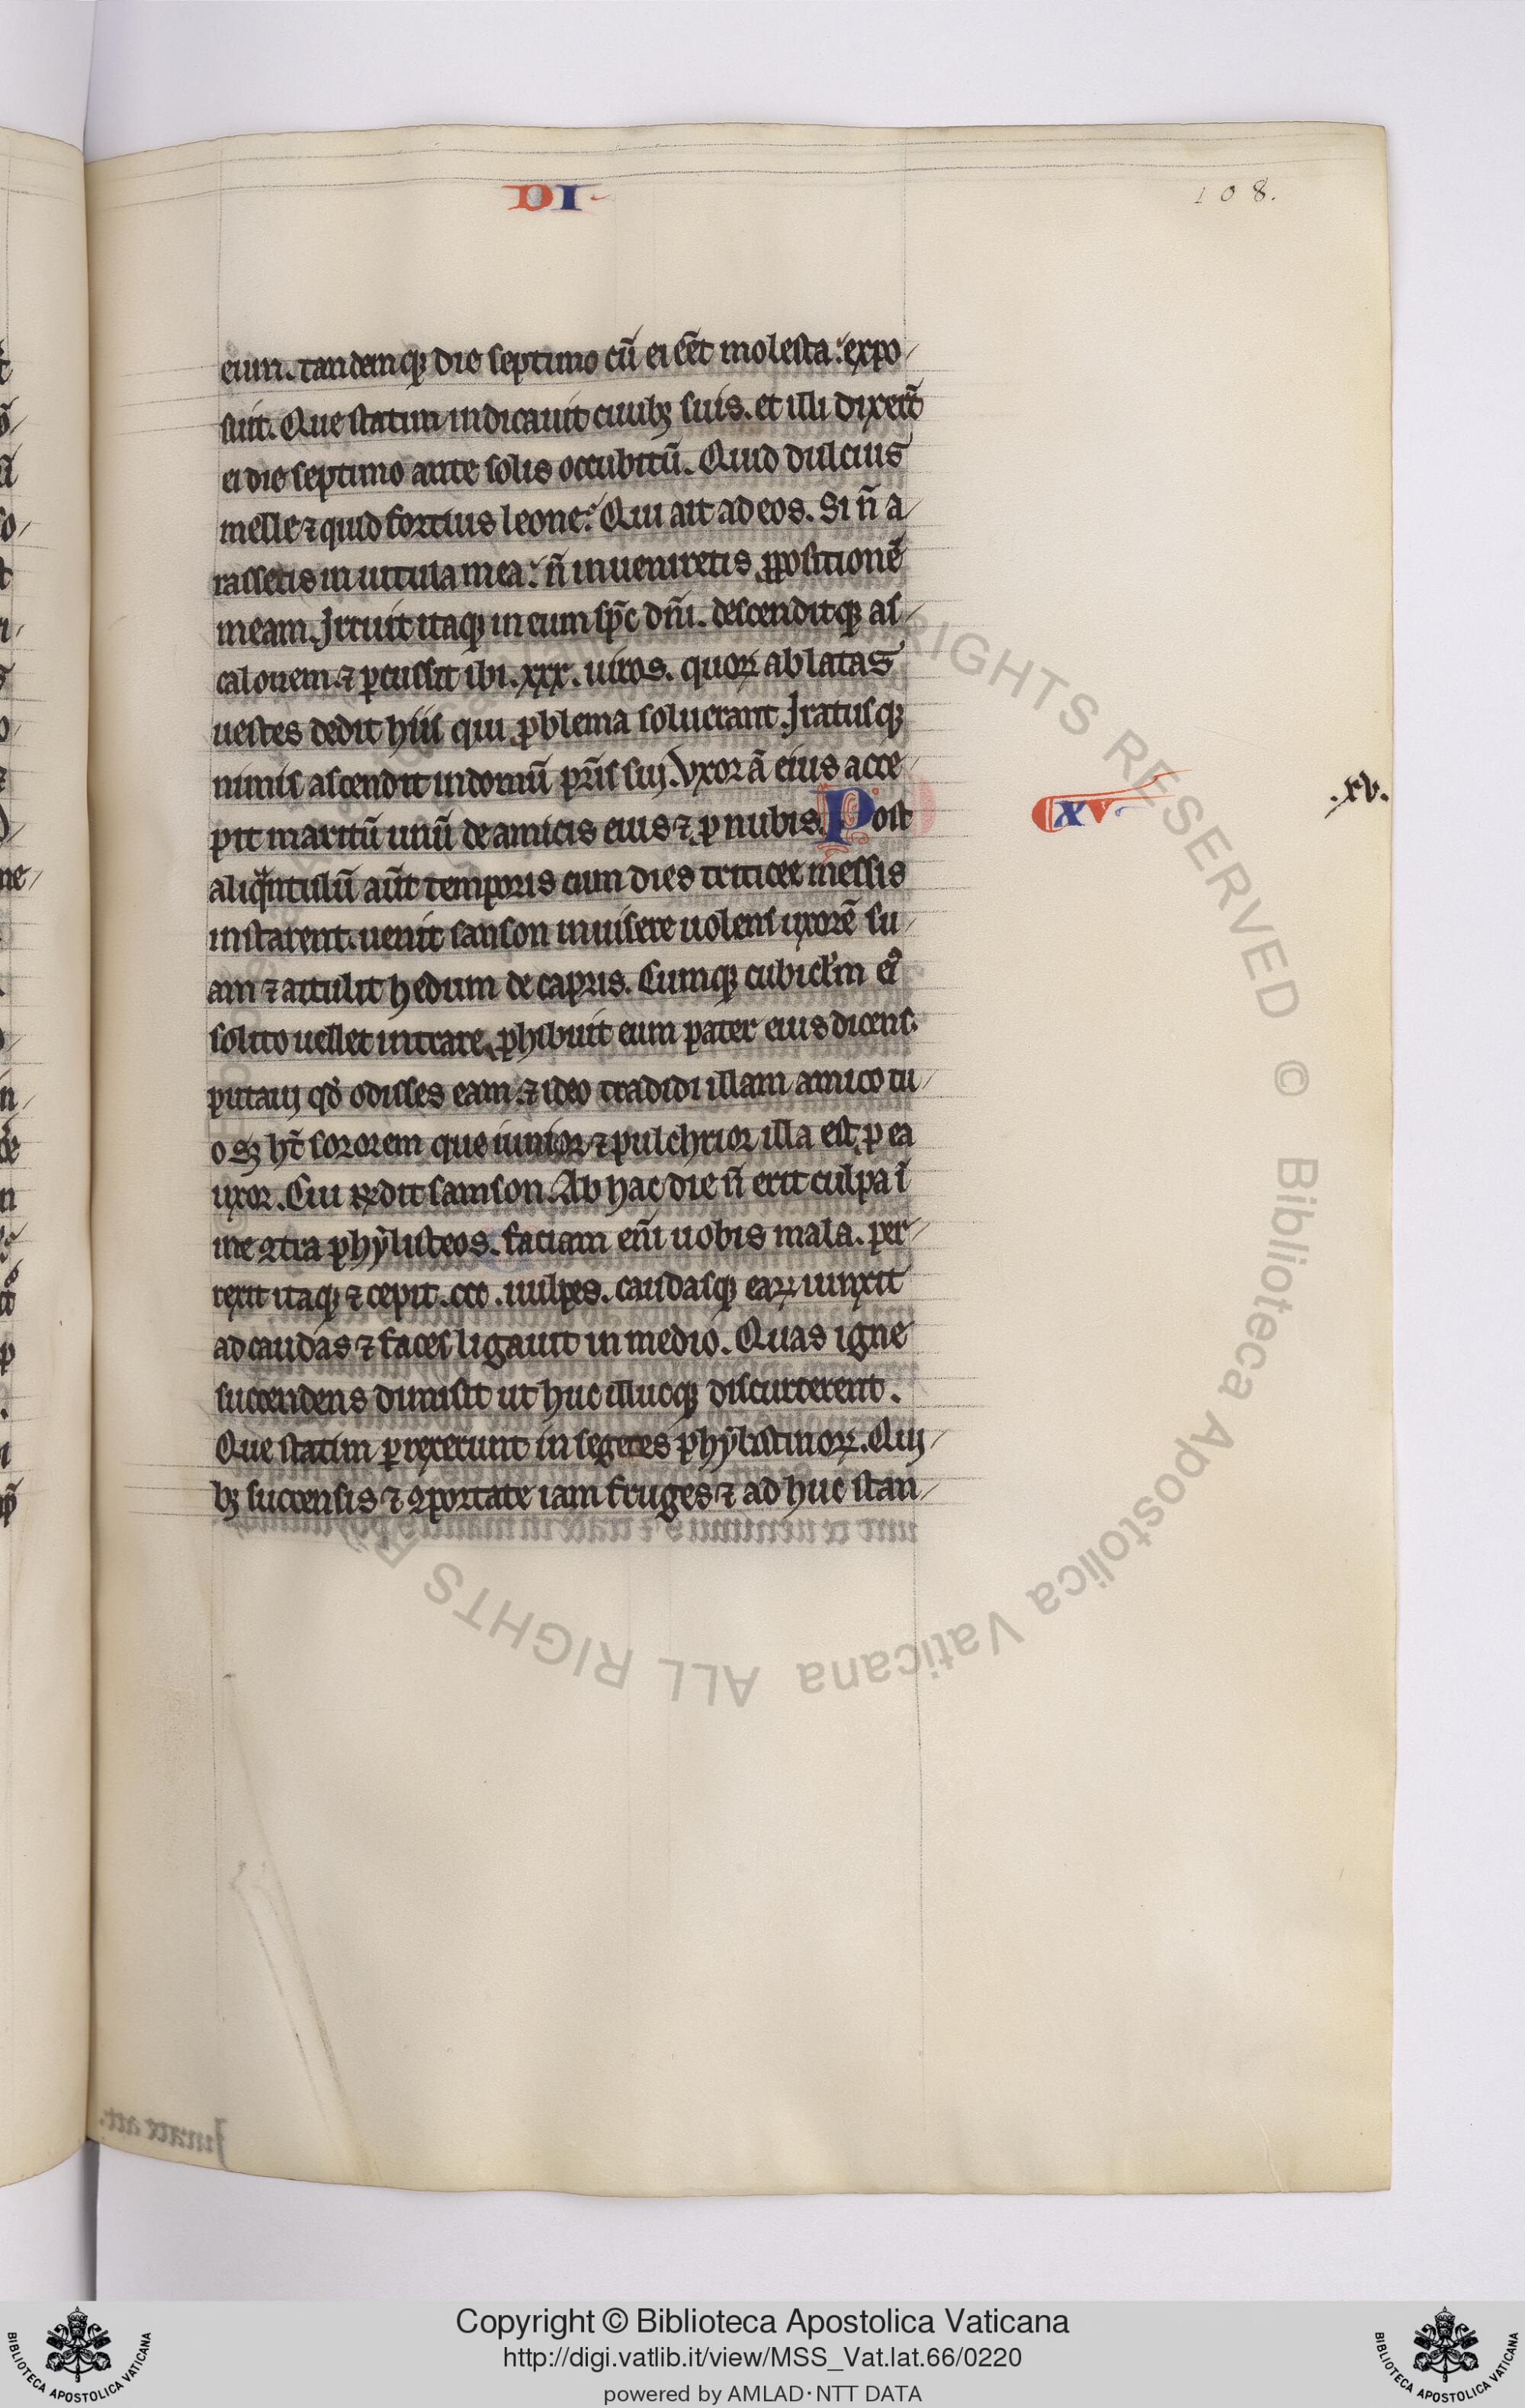 DI
108.
eum. tandemq; die septimo cū ei eēt molesta: expo
suit. Que statim indicauit ciuib; suis. et illi dixert̄
ei die septimo ante solis occubitū. Quid dulcius
melle ⁊ quid fortius leone? Qui ait ad eos. Si n̄ a
rassetis in uitula mea: n̄ inueniretis ꝓpositionē
meam. Irruit itaq; in eum sp̄c dn̄i. descenditq; as
calonem. ⁊ ꝑcussit ibi .xxx. uiros. quoꝝ ablatas
uestes dedit hiis qui ꝓblema soluerant. Iratusq;
nimis ascendit in domū pr̄is sui. Vxor ā eius acce
pit maritū unū de amicis eius ⁊ ꝓnubis. Post
.xv.
XV
aliqntulū aūt temporis cum dies triticee messis
instarent. uenit sanson inuisere uolens uxorē su
am ⁊ attulit hedum de capris. Cumq; cubicl'm ei9
solito uellet intrare, ꝓhibuit eum pater eius dicens.
putaui qd' odisses eam. ⁊ ideo tradidi illam amico tu
o sꝫ ht̄ sororem que iunior ⁊ pulchrior illa est. ꝓ ea
uxor. Cui rn̄dit samson. Ab hac die n̄ erit culpa ī
me ꝯtra phylisteos. faciam eni̅ uobis mala. per
rexit itaq; ⁊ cepit .ccc. uulpes. caudasq; eaꝝ iunxit
ad caudas ⁊ faces ligauit in medio. Quas igne
succendens dimisit ut huc illucq; discurrerent.
Que statim ꝑrexerunt in segetes phylistinoꝝ. Qui
b; succensis ⁊ ꝯportate iam fruges ⁊ adhuc stan
BIBLIOTECA APOSTOLICA VATICANA
Copyright © Biblioteca Apostolica Vaticana
http://digi.vatlib.it/view/MSS_Vat.lat.66/0220
powered by AMLAD·NTT DATA
BIBLIOTECA APOSTOLICA VATICANA
© Biblioteca Apostolica Vaticana ALL RIGHTS RESERVED